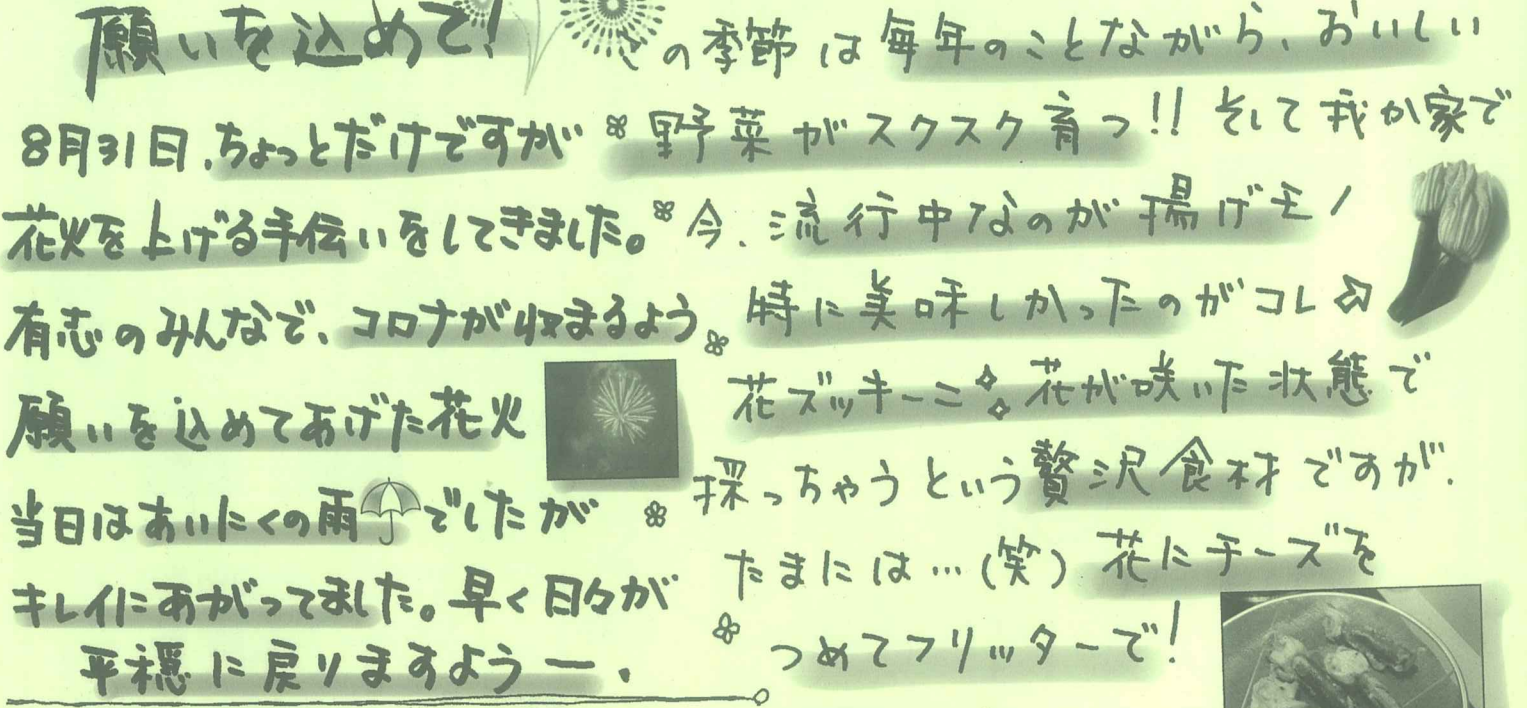 願いを込めて!
8月31日、ちょっとだけですが
花火を上げる手伝いをしてきました。
有志のみんなで、コロナが収まるよう
願いを込めてあげた花火
当日はあいにくの雨でしたが
キレイにあがってました。早く日々が
平穏に戻りますようー.
この季節は毎年のことながら、おいしい
野菜がスクスク育つ!!そして我が家で
今、流行中なのが揚げモノ
特に美味しかったのがコレ
花ズッキーニ 花が咲いた状態で
採っちゃうという贅沢食材ですが、
たまには…(笑)花にチーズを
つめてフリッターで!